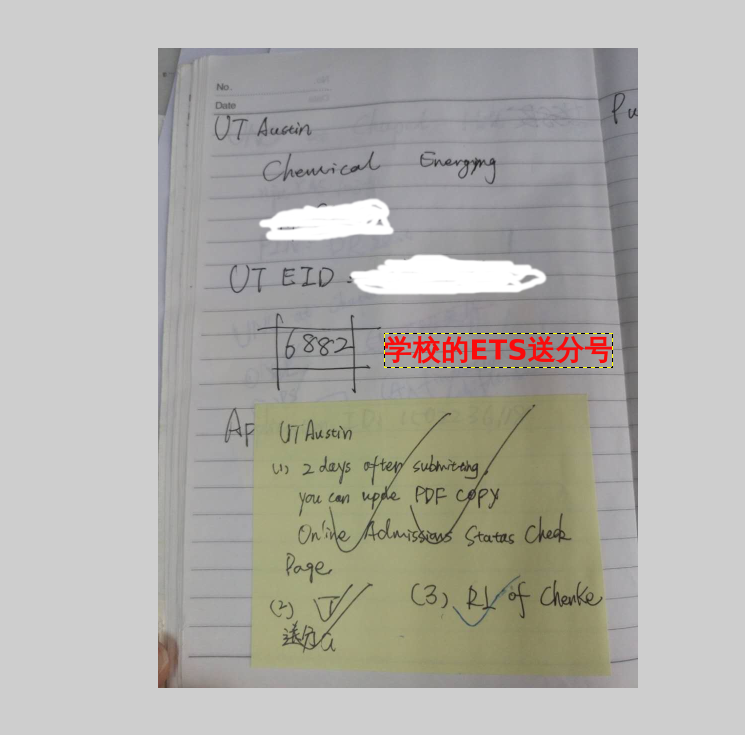 No.
Date
UT Austin
Chemical
UT EID :
6882
学校的ETS送分号
Ap
UT Austin
(1) 2 days after submitting,
you can upde PDF COPY
Online Admissions Status Check
Page
(2) T
送分
(3) RL of Chenke
Pu